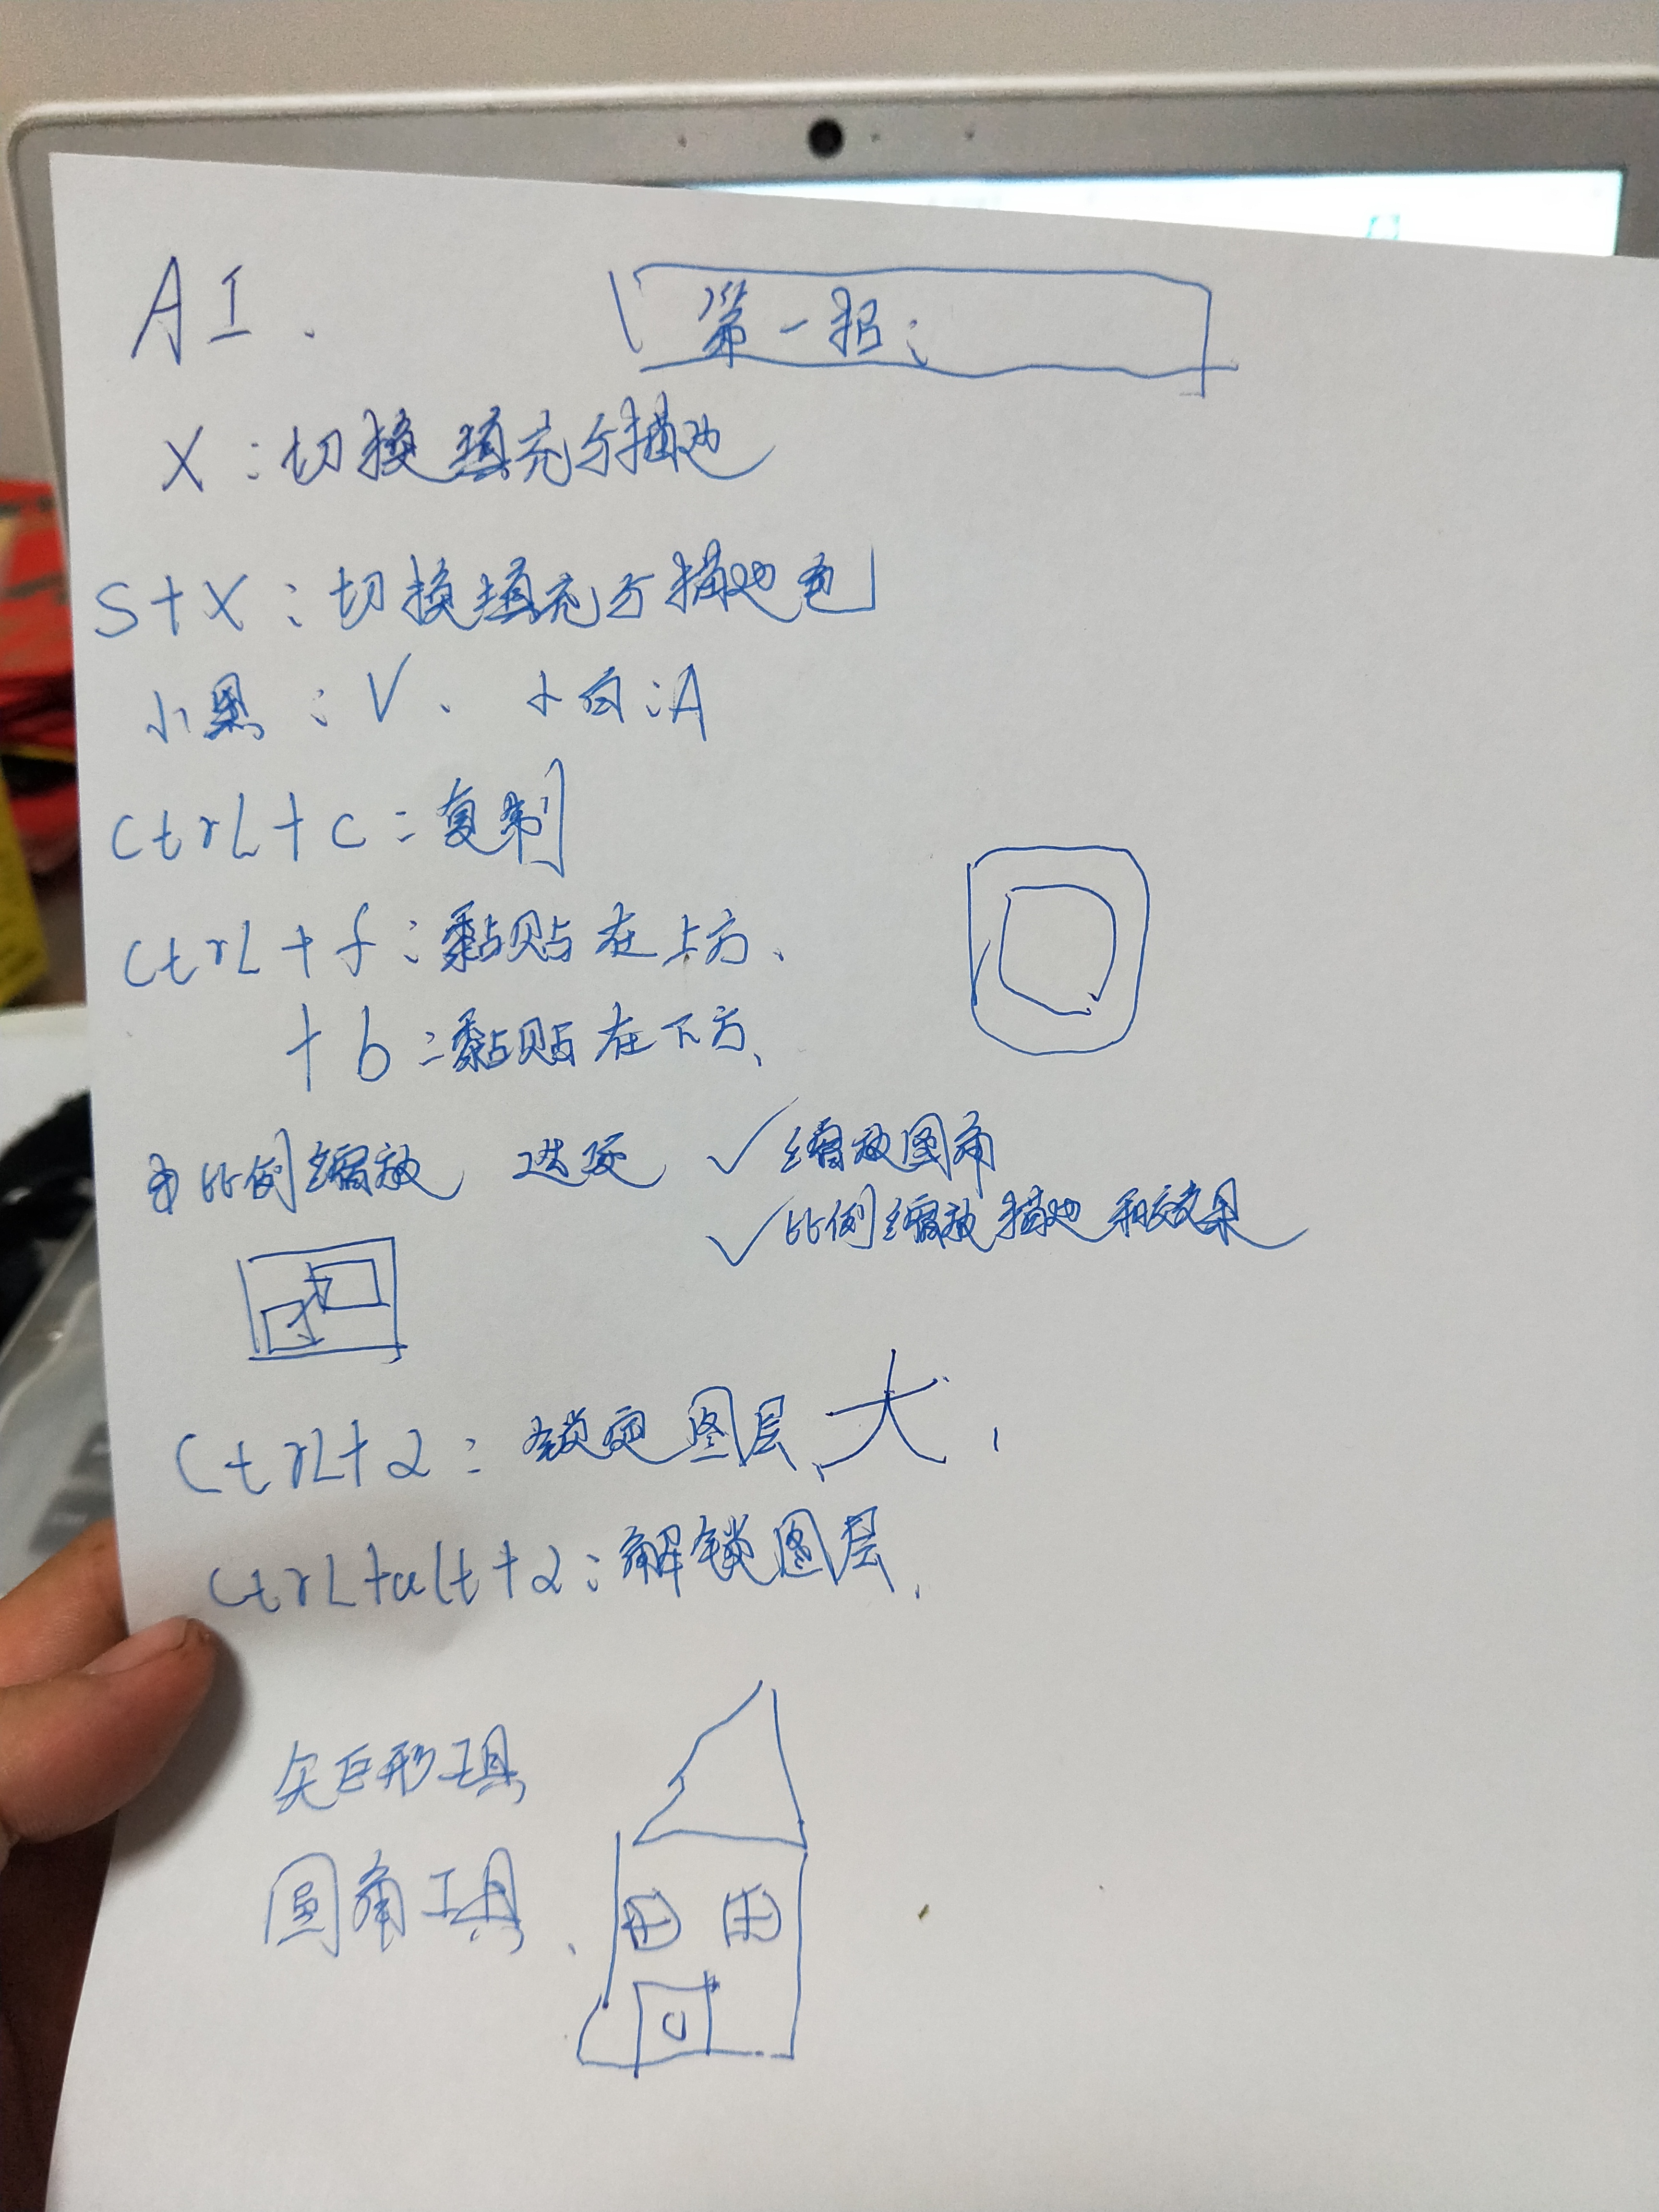 AI.
第一招:
X:切换填充与描边
S+X:切换填充与描边色
小黑:V、小白:A
Ctrl+C:复制
Ctrl+f:黏贴在上方、
+b:黏贴在下方、
比例缩放 ✓缩放圆角
✓比例缩放描边和效果
Ctrl+2:锁定图层、大、
Ctrl+alt+2:解锁图层、
矩形工具
圆角工具、